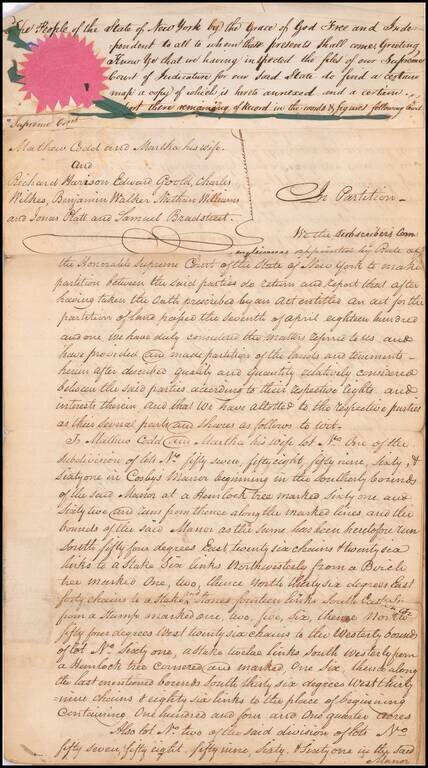 The People of the State of New York by the Grace of God Free and Inde-
pendent to all to whom these presents Shall come Greeting
Know Ye that we having inspected the files of our Supreme
Court of Judicature for our Said State do find a certain
map a copy of which is hereto annexed and a certain
report there remaining of Record in the words & figures following towit
Supreme Court
Mathew Codd and Martha his wife
and
Richard Harison Edward Goold, Charles
Wilkes, Benjamin Walker Nathan Williams
and Jonas Platt and Samuel Bradstreet.
In Partition—
We the Subscribers Com
missioners appointed by Rule of
the Honorable Supreme Court of the State of New York to make
partition between the said parties do return and report that after
having taken the Oath prescribed by an act entitled an act for the
partition of land passed the Seventh of april eighteen hundred
and one, we have duly considered the matters referred to us and
have provided and made partition of the lands and tenements
herein after described quality and quantity relatively considered
between the said parties according to their respective rights and
interests therein and that We have allotted to the respective parties
as their several parts and shares as follows to wit—
To Mathew Codd and Martha his wife lot No. One of the
subdivision of lots Nos. fifty seven, fifty eight, fifty nine, sixty, &
sixty one in Cosby's Manor beginning in the Southerly bounds
of the said Manor at a Hemlock tree marked sixty one and
Sixty two and runs from thence along the marked lines and the
bounds of the said Manor as the same has been heretofore run
South fifty four degrees East twenty six chains & twenty six
links to a Stake Six links Northwesterly from a Birch
tree marked One, two, thence North thirty six degrees East
forty chains to a Stake and Stones fourteen links South East
from a Stump marked one, two, five, six, thence North
fifty four degrees West twenty six chains to the Westerly bounds
of lot No. Sixty one, a stake twelve links South Westerly from
a Hemlock tree Cornered and marked, One Six, thence along
the last mentioned bounds South thirty six degrees West thirty
nine chains & eighty six links to the place of beginning
Containing One hundred and four and One quarter acres
Also lot No. two of the said division of lots Nos.
fifty seven, fifty eight, fifty nine, Sixty, & Sixty one in the said
Manor